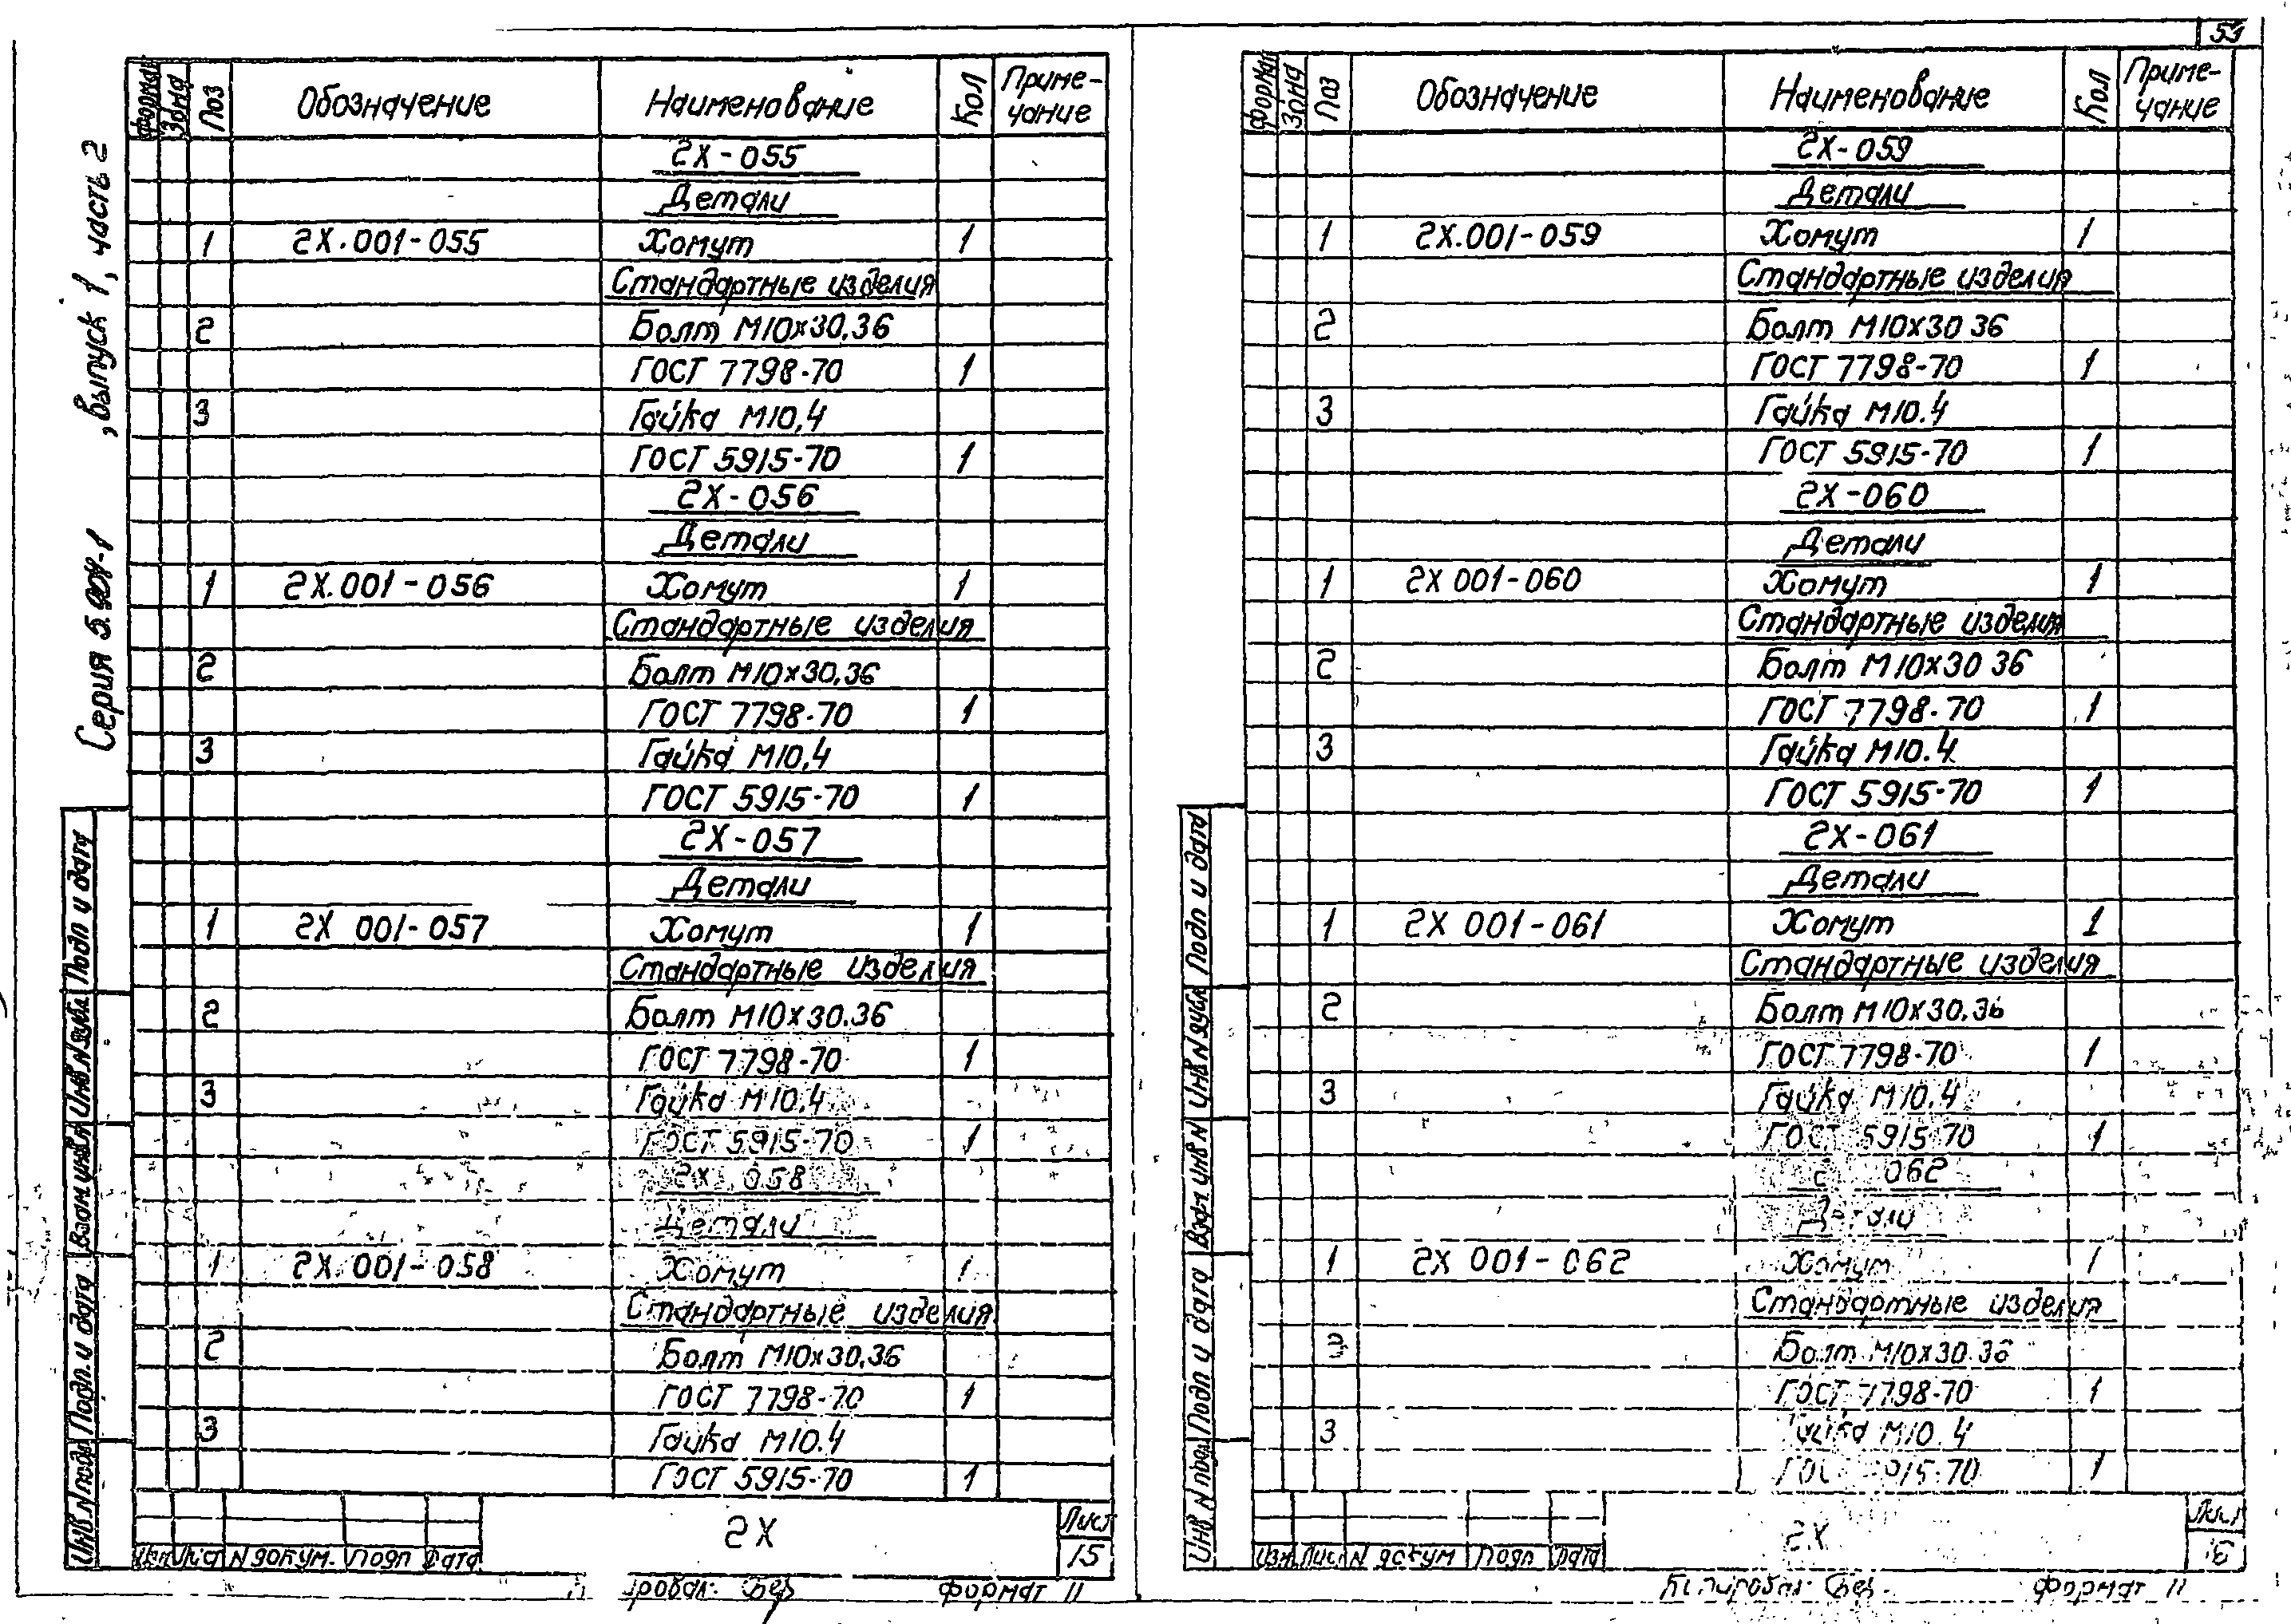 53
Серия 5.904-1 , выпуск 1, часть 2
Формат Зона Поз Обозначение Наименование Кол Приме-
чание
2Х-055
Детали
1 2Х.001-055 Хомут 1
Стандартные изделия
2 Болт М10х30.36
ГОСТ 7798-70 1
3 Гайка М10.4
ГОСТ 5915-70 1
2Х-056
Детали
1 2Х.001-056 Хомут 1
Стандартные изделия
2 Болт М10х30.36
ГОСТ 7798-70 1
3 Гайка М10.4
ГОСТ 5915-70 1
2Х-057
Детали
1 2Х 001-057 Хомут 1
Стандартные изделия
2 Болт М10х30.36
ГОСТ 7798-70 1
3 Гайка М10.4
ГОСТ 5915-70 1
2Х 058
Детали
1 2Х.001-058 Хомут 1
Стандартные изделия
2 Болт М10х30.36
ГОСТ 7798-70 1
3 Гайка М10.4
ГОСТ 5915-70 1
2Х
Лист
15
Изм Лист N докум. Подп Дата
Формат 11
Инв N подл Подп. и дата Взам инв N Инв N дубл. Подп и дата
Формат Зона Поз Обозначение Наименование Кол Приме-
чание
2Х-059
Детали
1 2Х.001-059 Хомут 1
Стандартные изделия
2 Болт М10х30 36
ГОСТ 7798-70 1
3 Гайка М10.4
ГОСТ 5915-70 1
2Х-060
Детали
1 2Х 001-060 Хомут 1
Стандартные изделия
2 Болт М10х30 36
ГОСТ 7798-70 1
3 Гайка М10.4
ГОСТ 5915-70 1
2Х-061
Детали
1 2Х 001-061 Хомут 1
Стандартные изделия
2 Болт М10х30.36
ГОСТ 7798-70 1
3 Гайка М10.4
ГОСТ 5915-70 1
062
Детали
1 2Х 001-062 Хомут 1
Стандартные изделия
Болт М10х30.36
ГОСТ 7798-70 1
3 Гайка М10.4
ГОСТ 5915-70 1
2Х
Лист
Изм Лист N докум Подп Дата
Копировал: Формат 11
Инв. N подл Подп и дата Взам инв N Инв N дубл Подп и дата